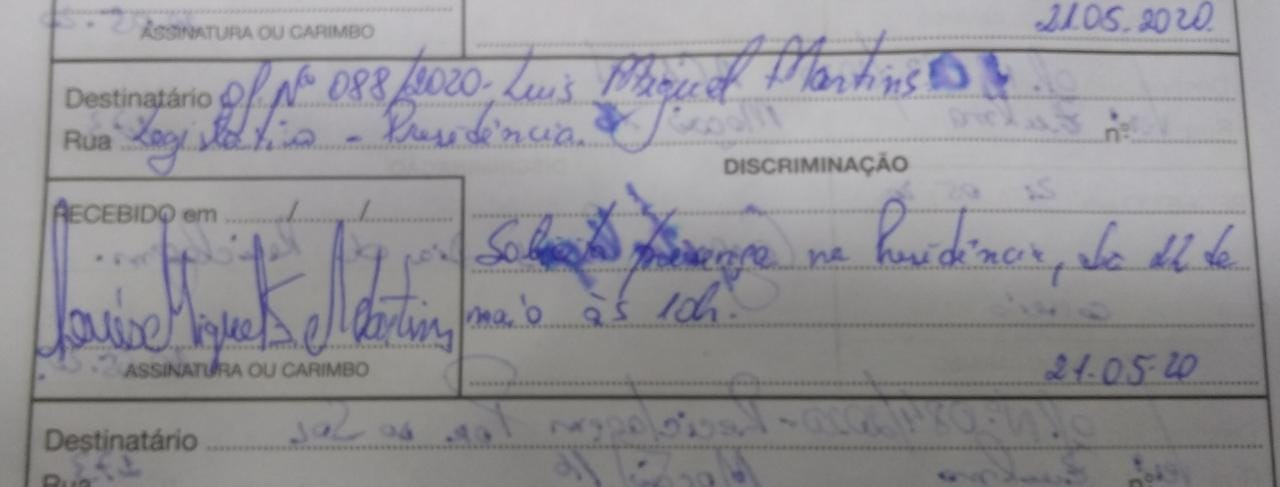 21.05.2020.
ASSINATURA OU CARIMBO
Destinatário Of. Nº 088/2020 - Luis Miguel Martins
Rua Legislativo - Presidência. nº
DISCRIMINAÇÃO
RECEBIDO em / /
presença na Presidência, de
maio às 10h.
Miguel Martins
ASSINATURA OU CARIMBO
21.05.20
Destinatário
Rua nº